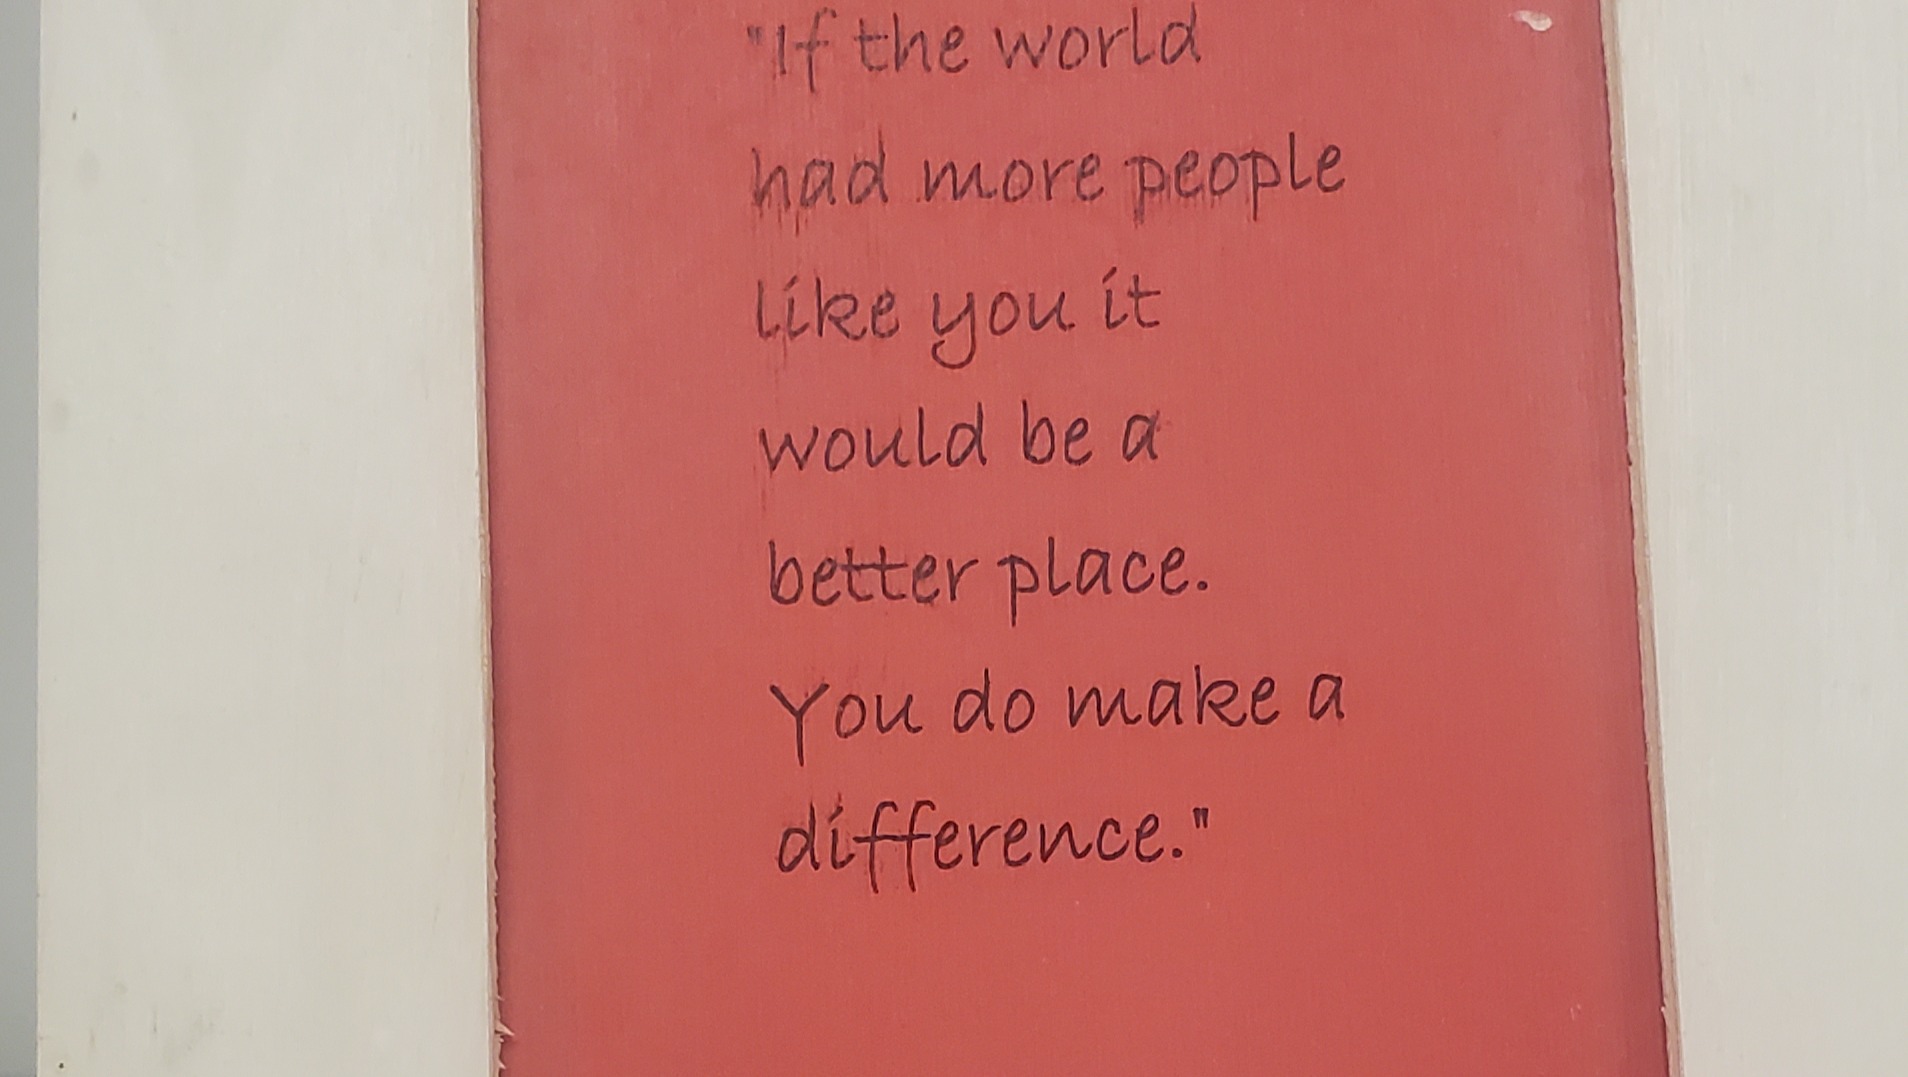 "If the world
had more people
like you it
would be a
better place.
You do make a
difference."